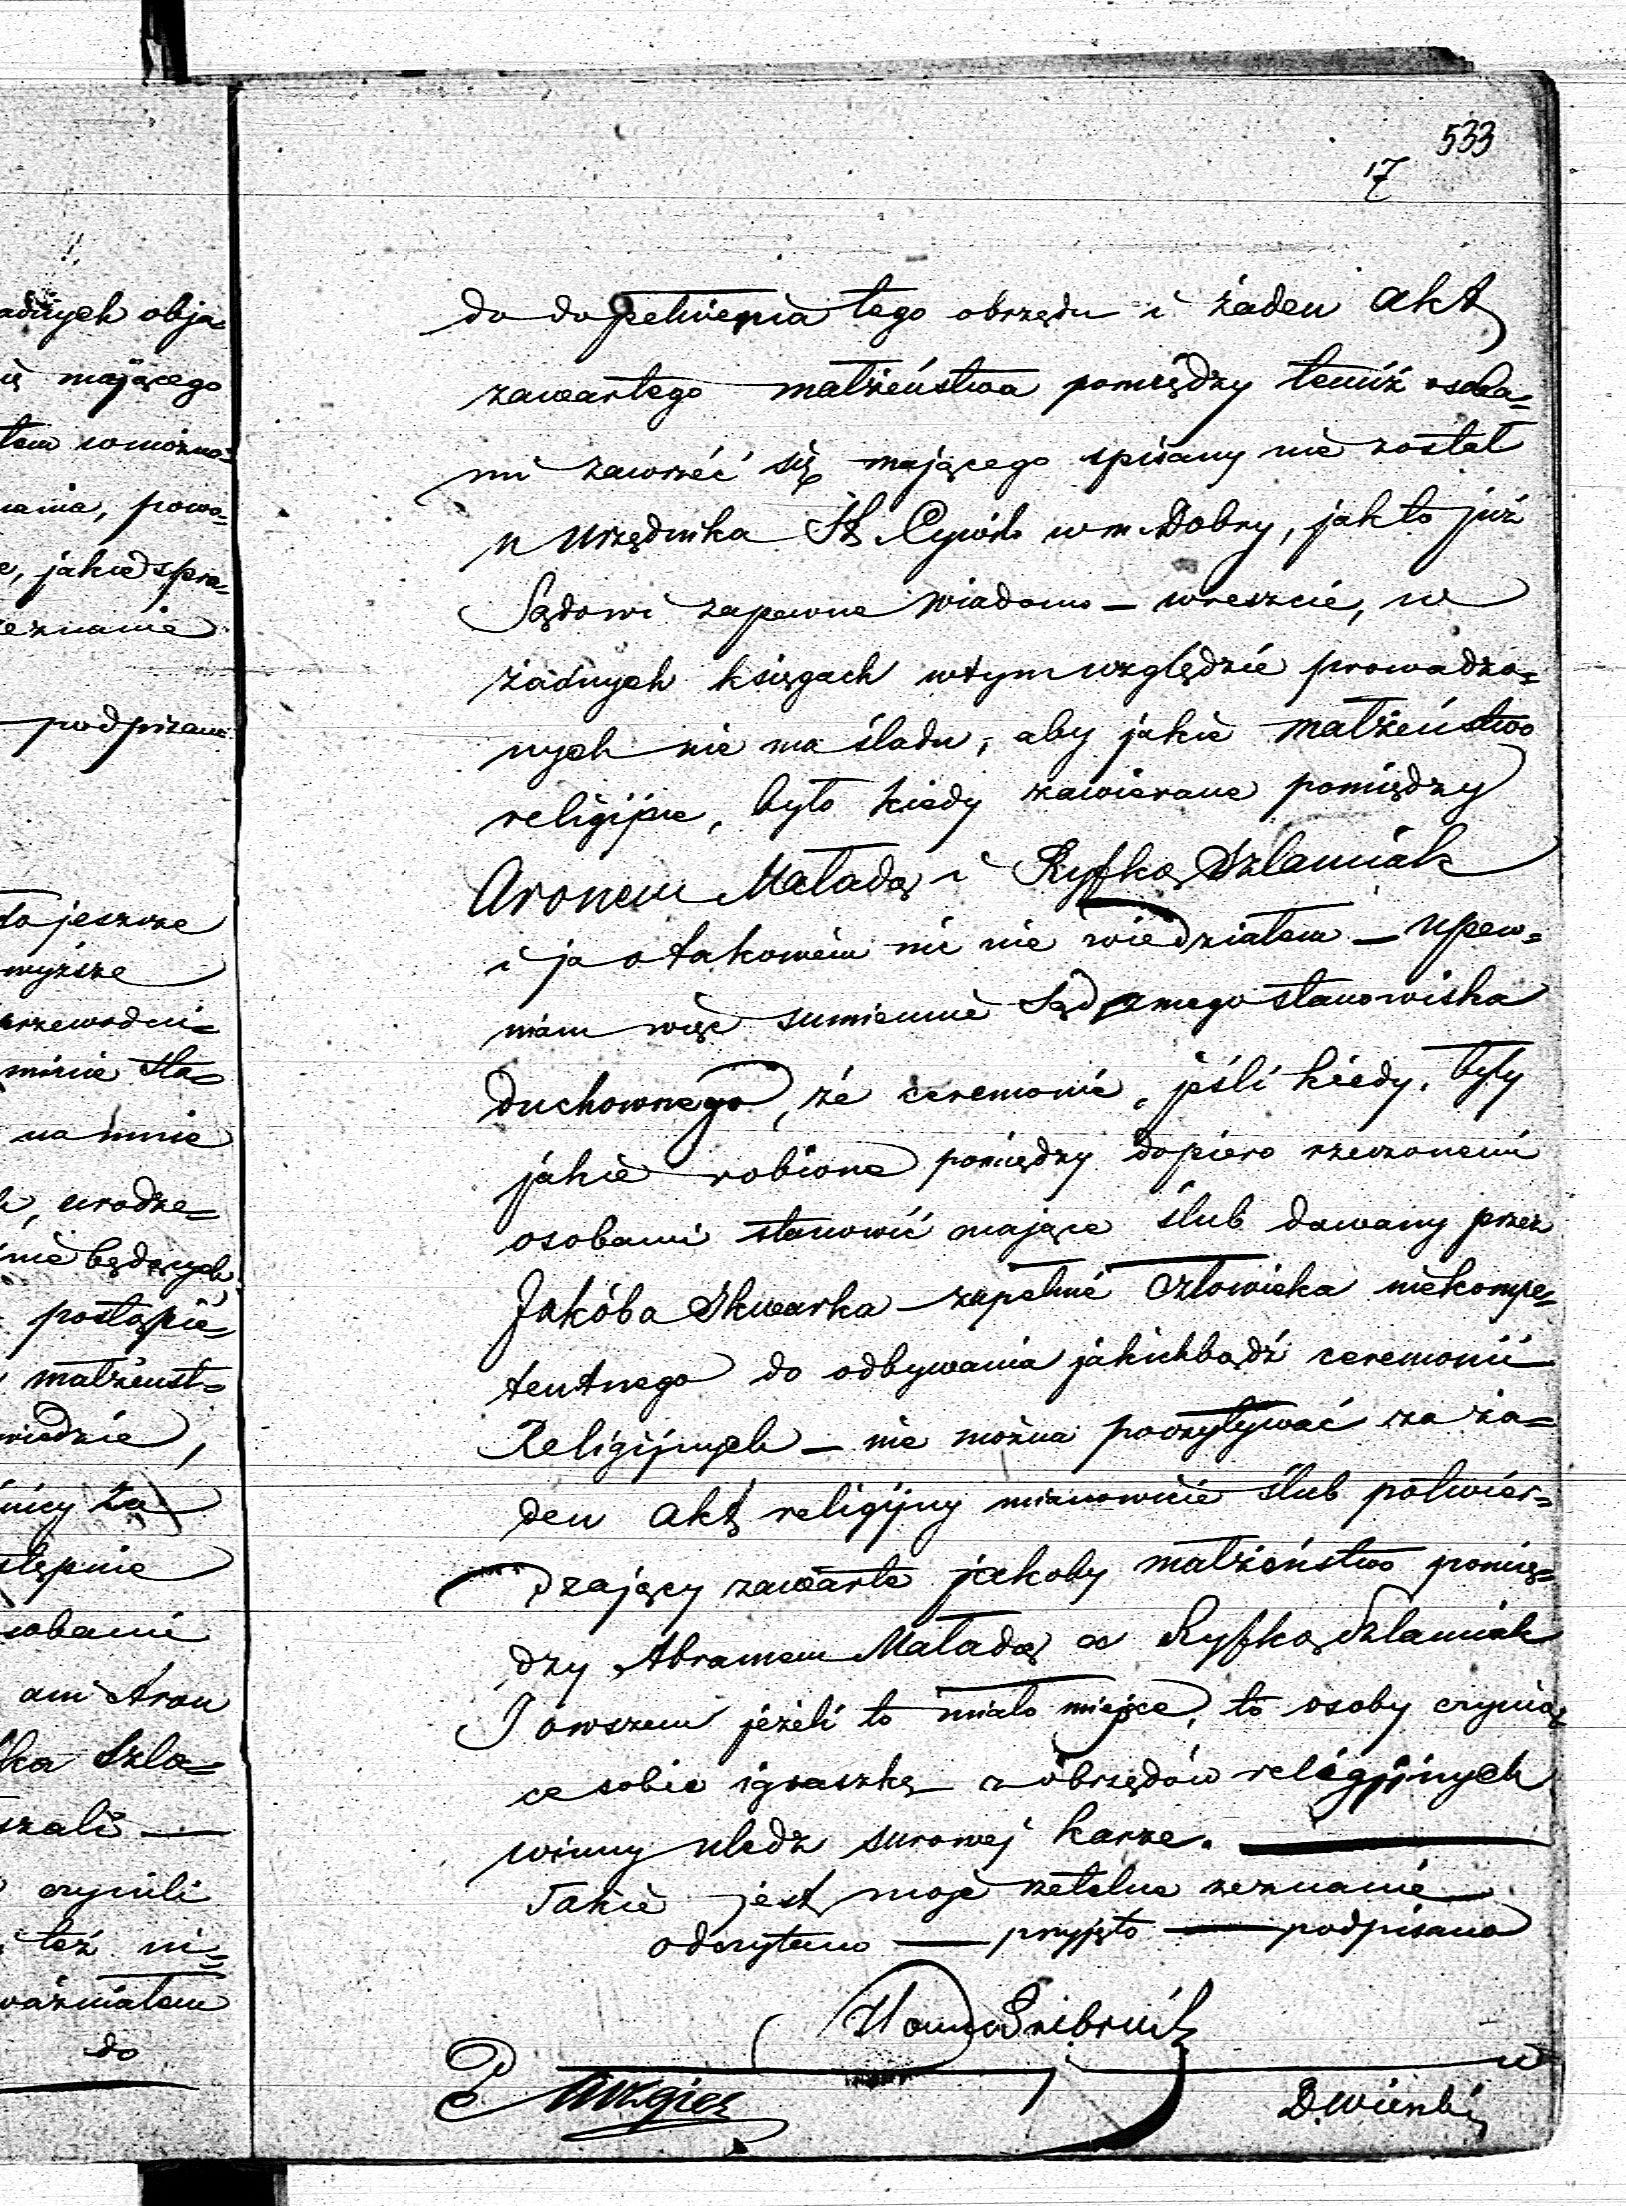 533
17
do dopełnienia tego obrzędu i żaden akt
zawartego małżeństwa pomiędzy temiż osoba=
mi zawrzéć się mającego spisany nie został
u Urzędnika St. Cywilo w m. Dobry, jak to już
Sądowi zapewne wiadomo – wreszcie, w
żadnych księgach wtym względzie prowadzo=
nych nie ma śladu, aby jakie małżeństwo
religijne, było kiedy zawierane pomiędzy
Aronem Maładą i Ryfką Szlamiak
i ja o takowém nic nie wiedziałem – upew=
niam więc sumiennie Sąd z mego stanowiska
duchownego, że ceremonie, jeśli kiedy, były
jakie robione pomiędzy dopiero rzeczonemi
osobami stanowić mające ślub dawany przez
Jakóba Skwarka zupełnie człowieka niekompe=
tentnego do odbywania jakichbądź ceremonii
Religijnych – nie można poczytywać za ża=
den akt religijny mianowicie ślub potwier=
dzający zawarte jakoby małżeństwo pomię=
dzy Abramem Maładą a Ryfką Szlamiak
I owszem jeżeli to miało miejsce, to osoby czynią
ce sobie igraszkę z obrzędów religijnych
winny uledz surowej karze.
Takie jest moje rzetelne zeznanie
odczytano — przyjęto — podpisano
w
adnych obja=
ię mającego
powo=
e, jakie spra=
zeznanie
podpisano
to jeszcze
wyższe
na mnie
urodze=
nie będących
postąpić
małżeńst=
wiedzie,
osobami
ani Aron
ka Szla=
szali —
czynili
też ni=
do